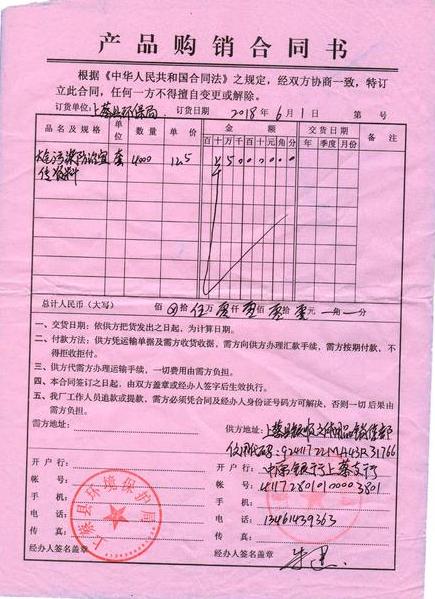 产品购销合同书
根据《中华人民共和国合同法》之规定，经双方协商一致，特订
立此合同，任何一方不得擅自变更或解除。
订货单位：上蔡县环保局 订货日期 2018年6月1日 第 号
品名及规格 单位 数量 单价 金额 交货日期 备注
百十万千百十元角分 年 季度 月份
大气污染防治宣 套 4000 12.5 ¥5000000
传资料
总计人民币（大写） 佰 拾伍万零仟零佰零拾零元 角 分
一、交货日期：依供方把货发出之日起，为计算日期。
二、付款方法：供方凭运输单据及需方收货收据，需方向供方办理汇款手续，需方按期付款，不
得拒收拒付。
三、供方代需方办理运输手续，一切费用由需方负担。
四、本合同签订之日起，由双方盖章或经办人签字后生效执行。
五、我厂工作人员追款或提款，需方必须凭合同及经办人身份证号码方可解决，否则一切后果由
需方负担。
需方地址： 供方地址：上蔡县 文体用品销售部
信用代码：92411722MA43R31766
开户行： 开户行：中原银行上蔡支行
帐号： 帐号：411728010100003801
手机： 手机：
电话： 电话：13461439363
传真： 传真：
经办人签名盖章 经办人签名盖章
上蔡县环境保护局